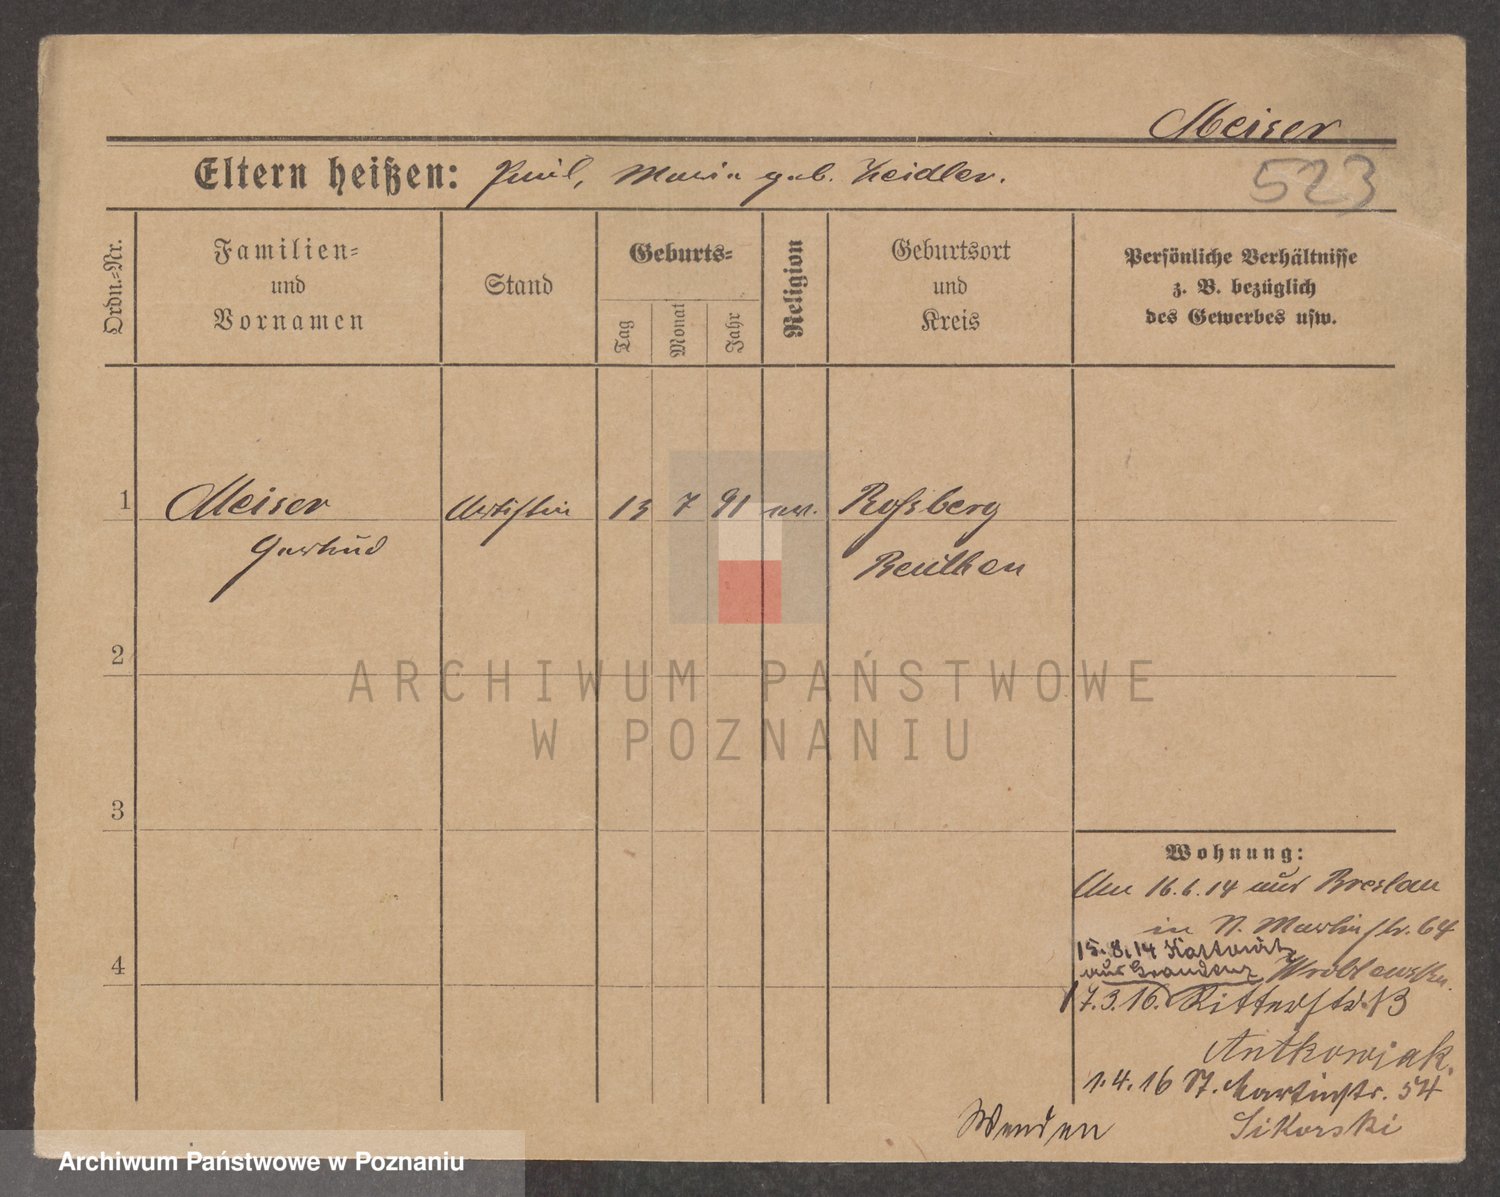 Meiser
Eltern heißen: Paul, Maria geb. Zeidler.
523
Ordn.-Nr.
Familien-
und
Vornamen
Stand
Geburts-
Tag
Monat
Jahr
Religion
Geburtsort
und
Kreis
Persönliche Verhältnisse
z. B. bezüglich
des Gewerbes usw.
1 Meiser Artistin 13 7 91 ev. Roßberg
Gertrud Beuthen
2
3
4
Wohnung:
Am 16.6.14 aus Breslau
in St. Martinstr. 64
15.8.14 Kattowitz
aus Graudenz
17.3.16. Ritterstr. 13
Antkowiak.
1.4.16 St. Martinstr. 54
Sikorski
Wenden
ARCHIWUM PAŃSTWOWE
W POZNANIU
Archiwum Państwowe w Poznaniu